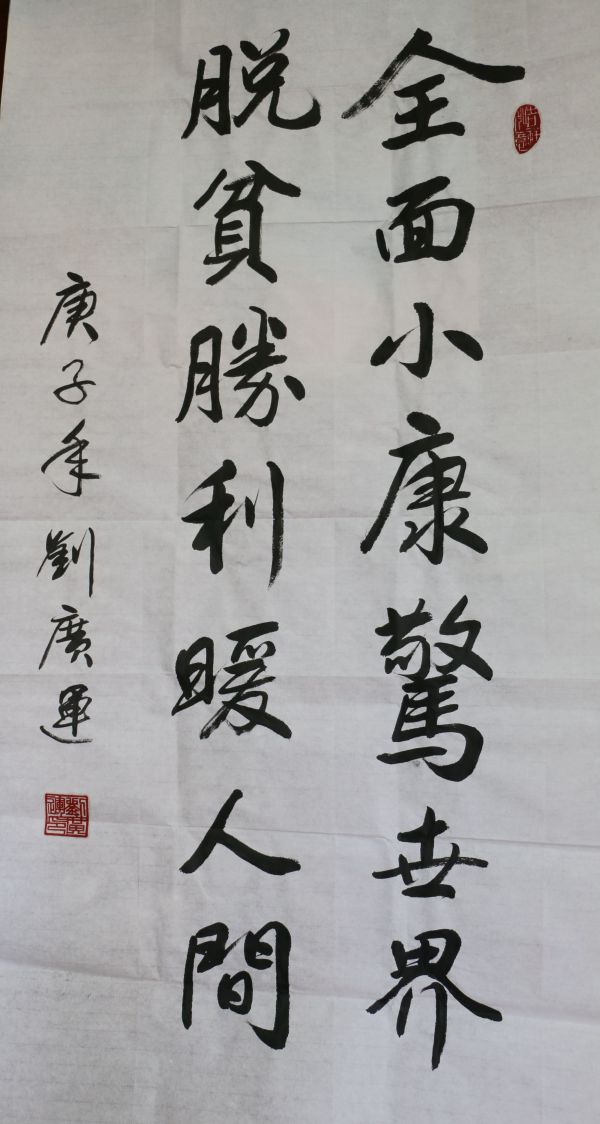 全面小康驚世界
脫貧勝利暖人間
庚子年劉廣運